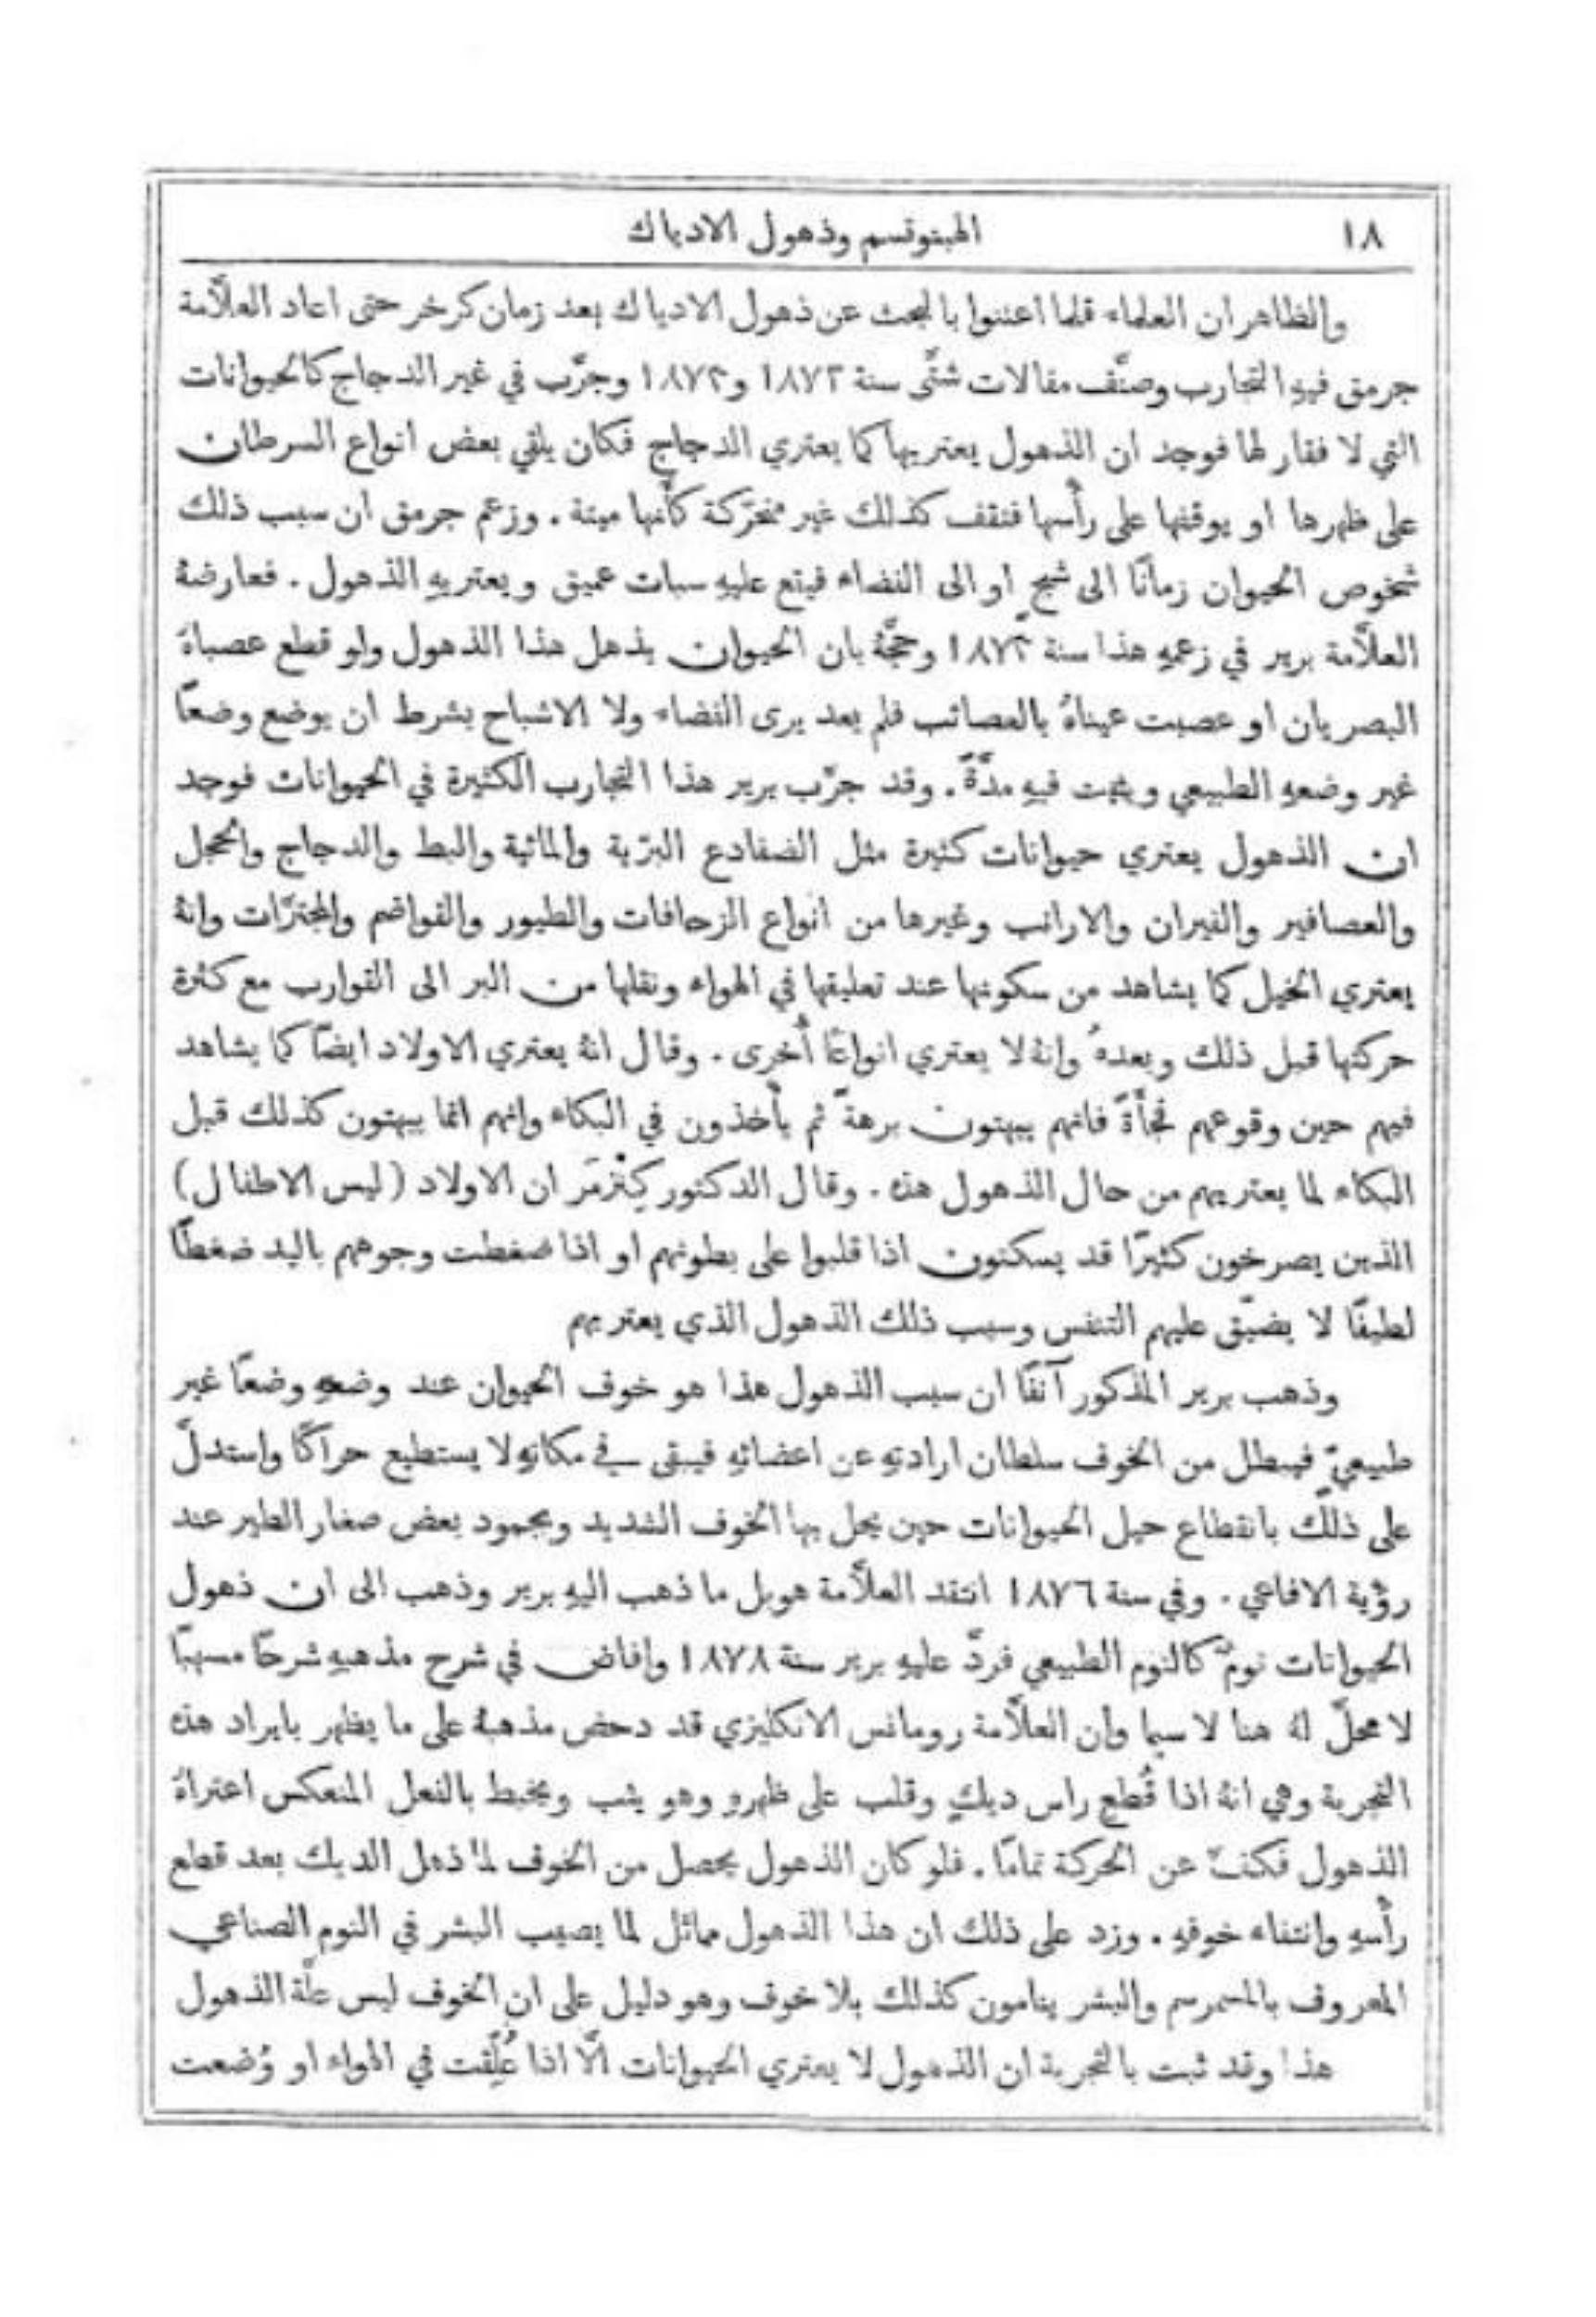 ١٨
الهبنوتسم وذهول الادياك
والظاهر ان العلماء قلما اعتنوا بالبحث عن ذهول الادياك بعد زمان كرخر حتى اعاد العلاَّمة
جرمق فيهِ التجارب وصنَّف مقالات شتَّى سنة ١٨٧٢ و١٨٧٣ وجرَّب في غير الدجاج كالحيوانات
التي لا فقار لها فوجد ان الذهول يعتريها كما يعتري الدجاج فكان يلقي بعض انواع السرطان
على ظهرها او يوقفها على رأسها فتقف كذلك غير متحرّكة كأنها ميتة . وزعم جرمق ان سبب ذلك
شخوص الحيوان زمانًا الى شبحٍ او الى الفضاء فيقع عليهِ سبات عميق ويعتريهِ الذهول . فعارضهُ
العلاَّمة برير في زعمهِ هذا سنة ١٨٧٣ وحجَّهُ بان الحيوان يذهل هذا الذهول ولو قطع عصباهُ
البصريان او عصبت عيناهُ بالعصائب فلم يعد يرى الفضاء ولا الاشباح بشرط ان يوضع وضعًا
غير وضعهِ الطبيعي ويثبت فيهِ مدَّةً . وقد جرَّب برير هذا التجارب الكثيرة في الحيوانات فوجد
ان الذهول يعتري حيوانات كثيرة مثل الضفادع البرّية والمائية والبط والدجاج والحجل
والعصافير والفيران والارانب وغيرها من انواع الزحافات والطيور والقواضم والمجترَّات وانهُ
يعتري الخيل كما يشاهد من سكونها عند تعليقها في الهواء ونقلها من البر الى القوارب مع كثرة
حركتها قبل ذلك وبعدهُ وانهُ لا يعتري انواعًا أُخرى . وقال انهُ يعتري الاولاد ايضًا كما يشاهد
فيهم حين وقوعهم فجأَةً فانهم يبهتون برهةً ثم يأخذون في البكاء وانهم انما يبهتون كذلك قبل
البكاء لما يعتريهم من حال الذهول هذه . وقال الدكتور ان الاولاد (ليس الاطفال)
الذين يصرخون كثيرًا قد يسكنون اذا قلبوا على بطونهم او اذا ضغطت وجوههم باليد ضغطًا
لطيفًا لا يضيّق عليهم التنفس وسبب ذلك الذهول الذي يعتريهم
وذهب برير المذكور آنفًا ان سبب الذهول هذا هو خوف الحيوان عند وضعهِ وضعًا غير
طبيعيّ فيبطل من الخوف سلطان ارادتهِ عن اعضائهِ فيبقى في مكانهِ لا يستطيع حراكًا واستدلَّ
على ذلك بانقطاع حيل الحيوانات حين يحل بها الخوف الشديد وبجمود بعض صغار الطير عند
رؤية الافاعي . وفي سنة ١٨٧٦ انتقد العلاَّمة هوبل ما ذهب اليهِ برير وذهب الى ان ذهول
الحيوانات نومٌ كالنوم الطبيعي فردَّ عليهِ برير سنة ١٨٧٨ وافاض في شرح مذهبهِ شرحًا مسهبًا
لا محلَّ لهُ هنا لا سيما وان العلاَّمة رومانس الانكليزي قد دحض مذهبهُ على ما يظهر بايراد هذه
التجربة وهي انهُ اذا قُطع راس ديكٍ وقلب على ظهرهِ وهو يثب ويخبط بالفعل المنعكس اعتراهُ
الذهول فكفَّ عن الحركة تمامًا . فلو كان الذهول يحصل من الخوف لما ذهل الديك بعد قطع
رأْسهِ وانتفاء خوفهِ . وزد على ذلك ان هذا الذهول مماثل لما يصيب البشر في النوم الصناعي
المعروف بالمسمرسم والبشر ينامون كذلك بلا خوف وهو دليل على ان الخوف ليس علَّة الذهول
هذا وقد ثبت بالتجربة ان الذهول لا يعتري الحيوانات الَّا اذا عُلِّقت في الهواء او وُضعت